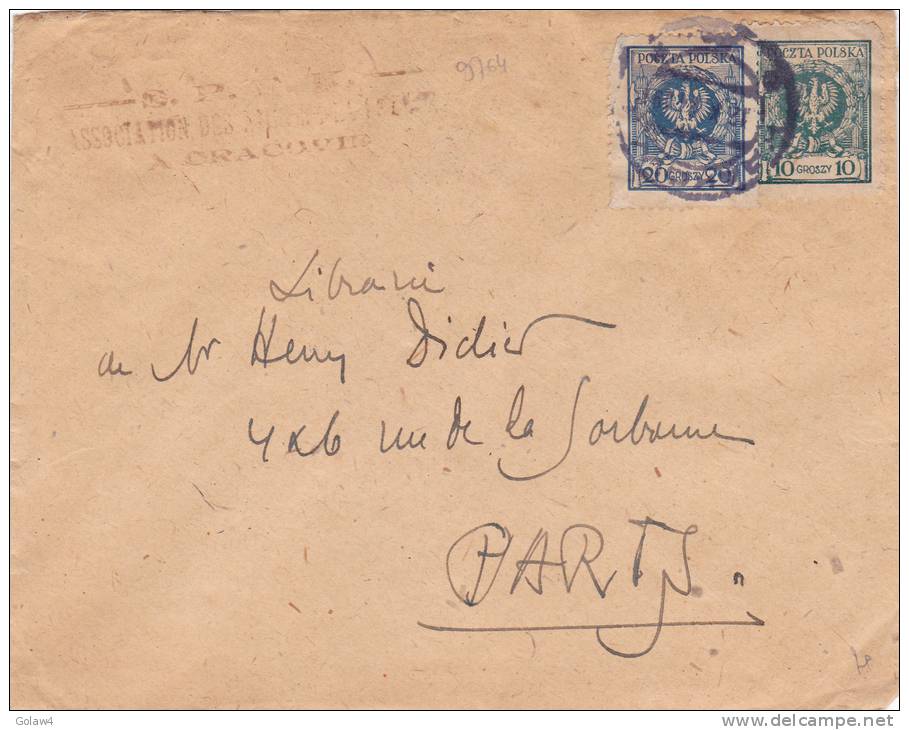 9764
ASSOCIATION DES
A CRACOVIE
POCZTA POLSKA
20 GROSZY 20
POCZTA POLSKA
10 GROSZY 10
Librarie
de Mr Henry Didier
4 & 6 rue de la Sorbonne
PARIS.
Golaw4
www.delcampe.net